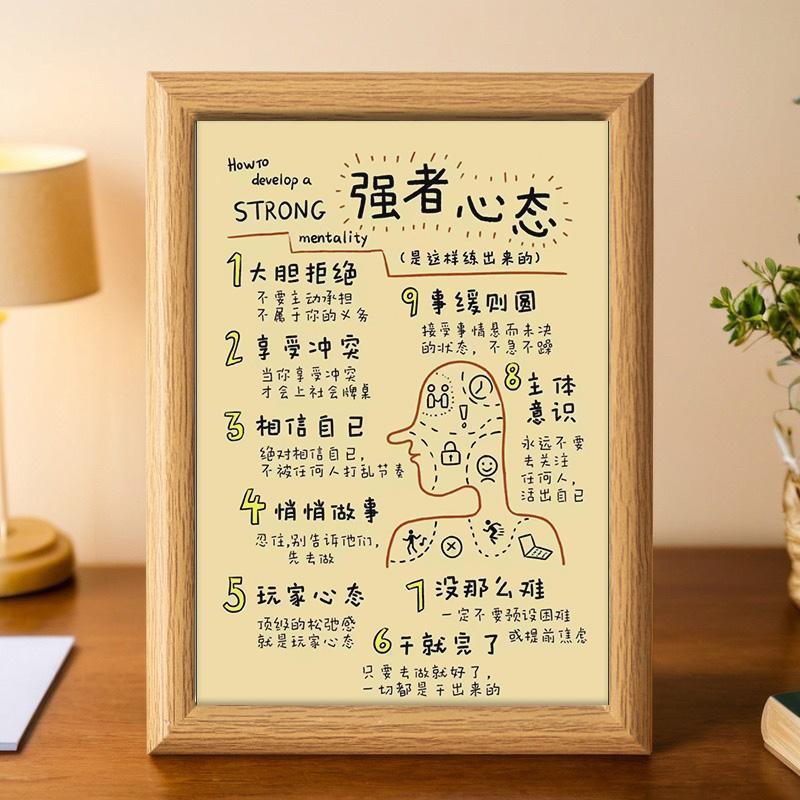 How TO
develop a
STRONG
mentality
强者心态
(是这样练出来的)
1 大胆拒绝
不要主动承担
不属于你的义务
2 享受冲突
当你享受冲突
才会上社会牌桌
3 相信自己
绝对相信自己,
不被任何人打乱节奏
4 悄悄做事
忍住,别告诉他们,
先去做
5 玩家心态
顶级的松弛感
就是玩家心态
6 干就完了
只要去做就好了,
一切都是干出来的
7 没那么难
一定不要预设困难
或提前焦虑
8 主体
意识
永远不要
去关注
任何人,
活出自己
9 事缓则圆
接受事情悬而未决
的状态,不急不躁